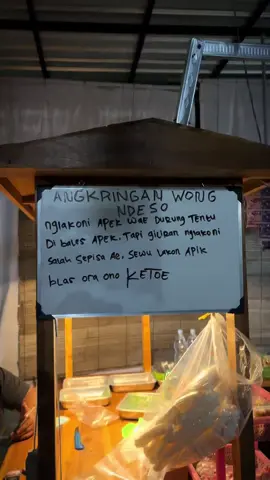 ANGKRINGAN WONG
NDESO
nglakoni APEK WAE DURUNG TENTU
Di bales APEK. TAPi giliran nglakoni
salah Sepisa AE, SEWU LAKON APIK
blas ora ono KETOE